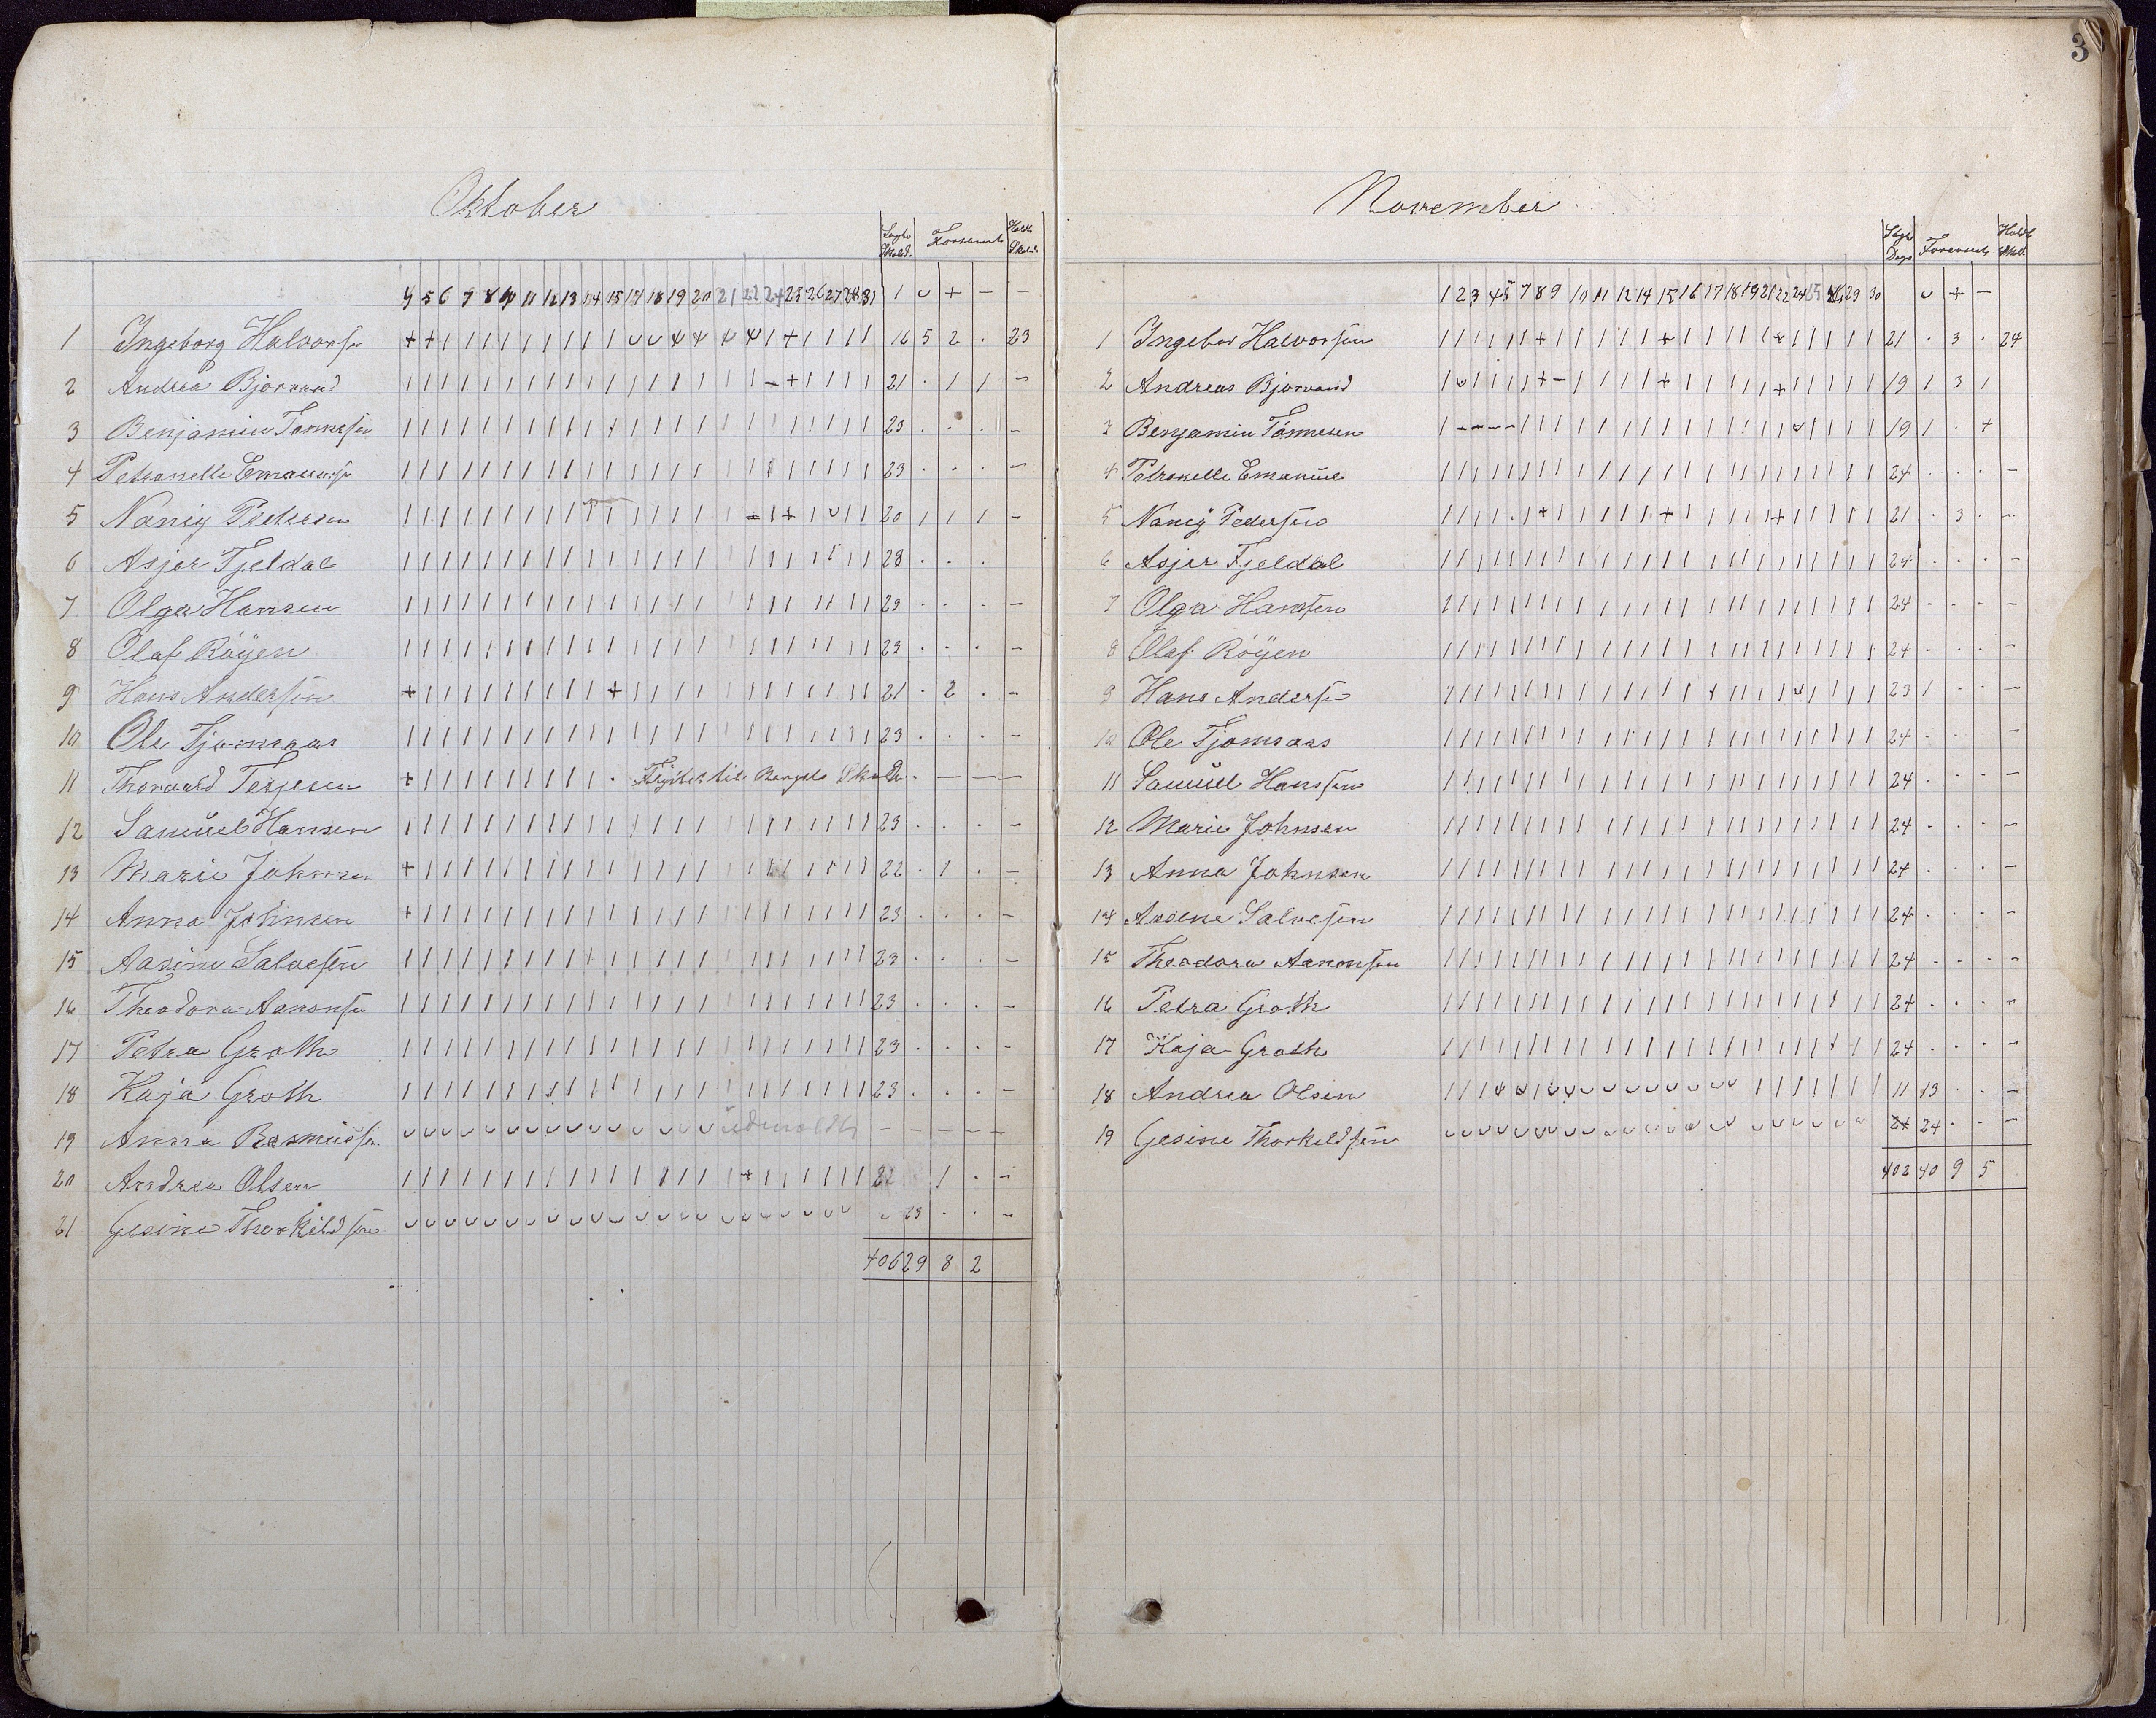 Oktober
Forsømt
4 5 6 7 8 9 10 11 12 13 14 15 17 18 19 20 21 22 24 25 26 27 28 31 1 ᴗ + - -
1 Ingeborg Halvorsen 16 5 2 . 23
2 Andreas Bjorvand 21 . 1 1 -
3 Benjamin Tønnesen 23 . . . -
4 Petronelle Emanuelsen 23 . . . -
5 Nanny Pedersen 20 1 1 1 -
6 Asjer Fjeldal 23 . . .
7 Olga Hansen 23 . . . -
8 Olaf Röyen 23 . . . -
9 Hans Andersen 21 . 2 . -
10 Ole Tjomsaas 23 . . . -
11 Thorvald Terjesen Flyttet til Skole . - - -
12 Samüel Hansen 23 . . . -
13 Marie Johnsen 22 . 1 . -
14 Anna Johnsen 23 . . . -
15 Aasine Salvesen 23 . . . -
16 Theodora Aanonsen 23 . . . -
17 Petra Groth 23 . . . -
18 Kaja Groth 23 . . . -
19 Anna Rasmüssen üdmeldt - - - - -
20 Andrea Olsen 22 1 . -
21 Gesine Thorkildsen 23 . . -
406 29 8 2
3
November
Forsømt
1 2 3 4 5 7 8 9 10 11 12 14 15 16 17 18 19 21 22 24 25 26 29 30 ᴗ + -
1 Ingebor Halvorsen 21 . 3 . 24
2 Andreas Bjorvand 19 1 3 1
3 Benjamin Tönnesen 19 1 . 4
4 Petronelle Emanüel 24 . . . -
5 Nancy Pedersen 21 . 3 . -
6 Asjer Fjeldal 24 . . . -
7 Olga Hansen 24 - - - -
8 Olaf Röyen 24 . . . -
9 Hans Andersen 23 1 . . -
10 Ole Tjomsaas 24 . . -
11 Samüel Hanssen 24 . . . -
12 Marie Johnsen 24 . . . -
13 Anna Johnsen 24 . . . -
14 Aasine Salvesen 24 . . . -
15 Theodora Aanonsen 24 . . . -
16 Petra Groth 24 . . . -
17 Kaja Groth 24 . . . -
18 Andrea Olsen 11 13 . . -
19 Gesine Thorkildsen 24 24 . . -
402 40 9 5